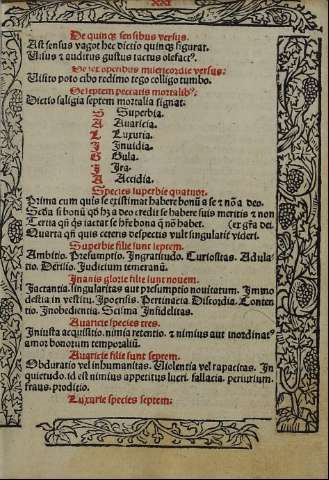 XXI
De quinque sensibus versus.
Ast sensus vagor hec dictio quinque figurat.
Visus et auditus gustus tactus olefactus.
De sex operibus misericordie versus:
Visito poto cibo redimo tego colligo tumbo.
De septem peccatis mortalibus.
Dictio saligia septem mortalia signat:
S Superbia.
A Avaricia.
L Luxuria.
I Invidia.
G Gula.
I Ira.
A Accidia.
Species superbie quatuor.
Prima cum quis se existimat habere bona a se et non a deo.
Secunda si bonum quod habet a deo credit se habere suis meritis et non
Tertia quando quis iactat se habere bona que non habet. (ex gratia dei.
Quarta quando quis ceteris despectis vult singulariter videri.
Superbie filie sunt septem.
Ambitio. Presumptio. Ingratitudo. Curiositas. Adula
tio. Derisio. Judicium temerarium.
Inanis glorie filie sunt novem.
Jactantia. singularitas aut presumptio novitatum. Immo
destia in vestitu. Ipocrisis. Pertinacia Discordia. Conten
tio. Inobedientia. Scisma Infidelitas.
Avaricie species tres.
Iniusta acquisitio. nimia retentio. et nimius aut inordinatus
amor bonorum temporalium.
Avaricie filie sunt septem.
Obduratio vel inhumanitas. Violentia vel rapacitas. In
quietudo. id est nimius appetitus lucri. fallacia. periurium.
fraus. proditio.
Luxurie species septem: